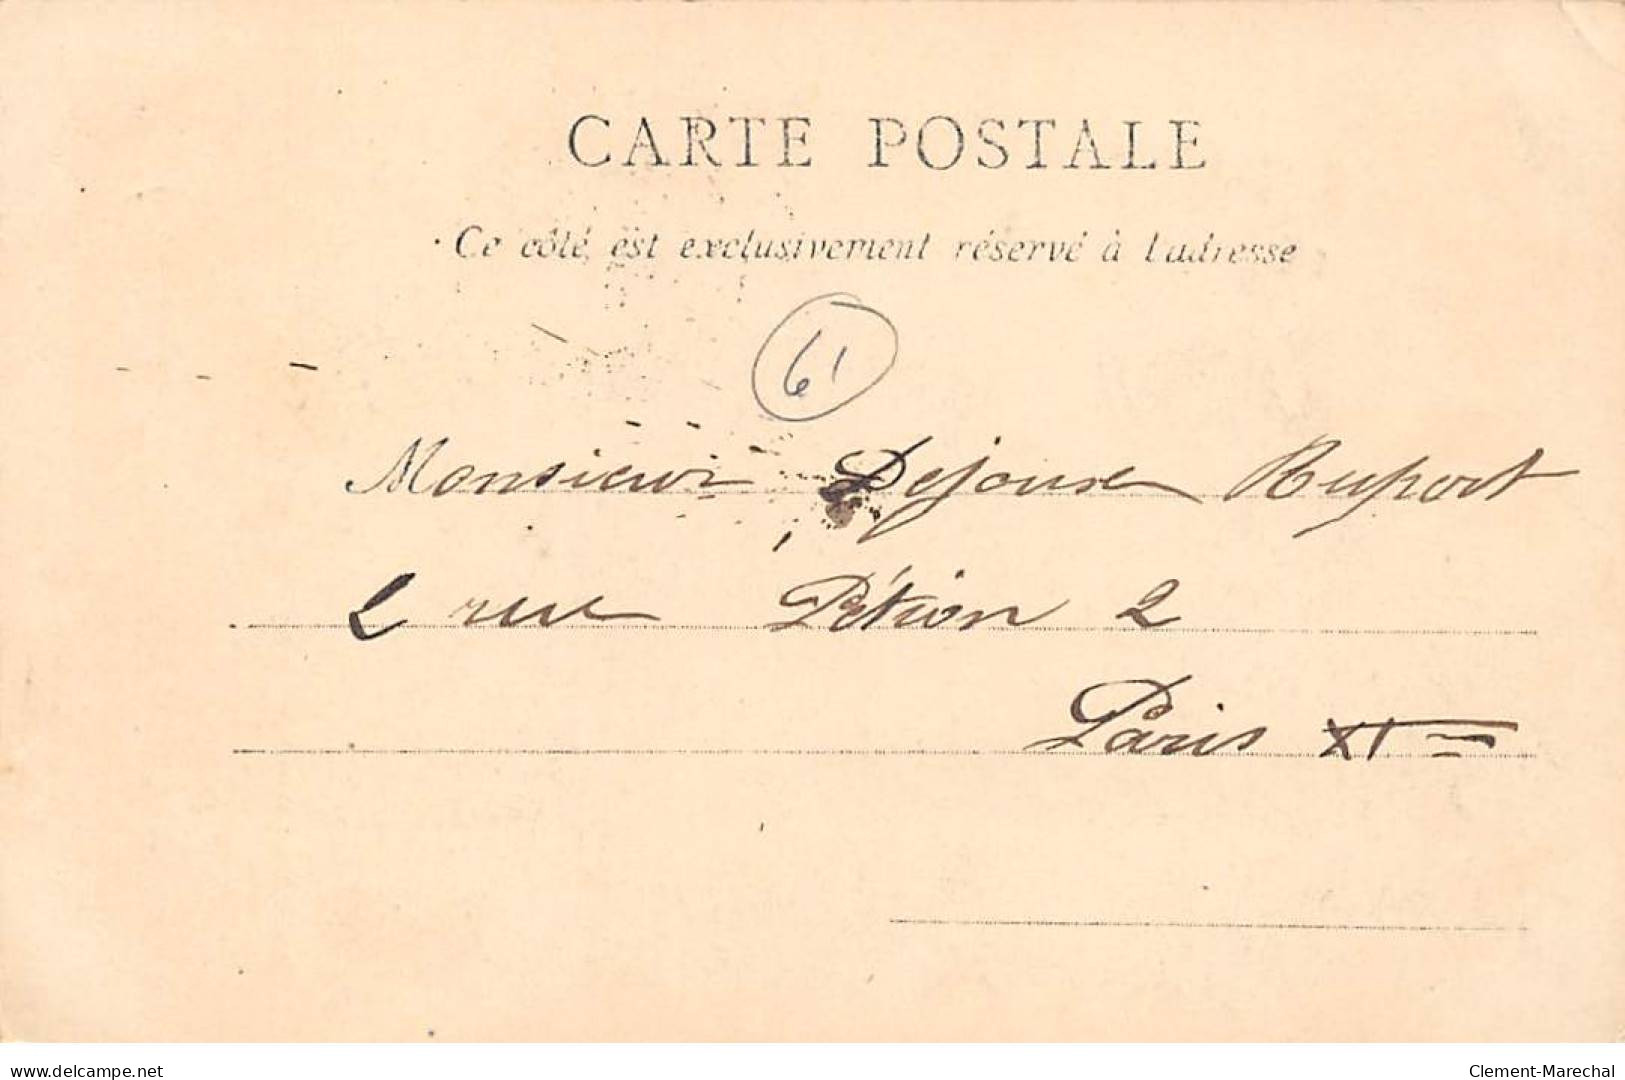 CARTE POSTALE
Ce côté est exclusivement réservé à l'adresse
61
Monsieur Dejouse Ruport
2 rue Pétion 2
Paris XIme
www.delcampe.net
Clement-Marechal